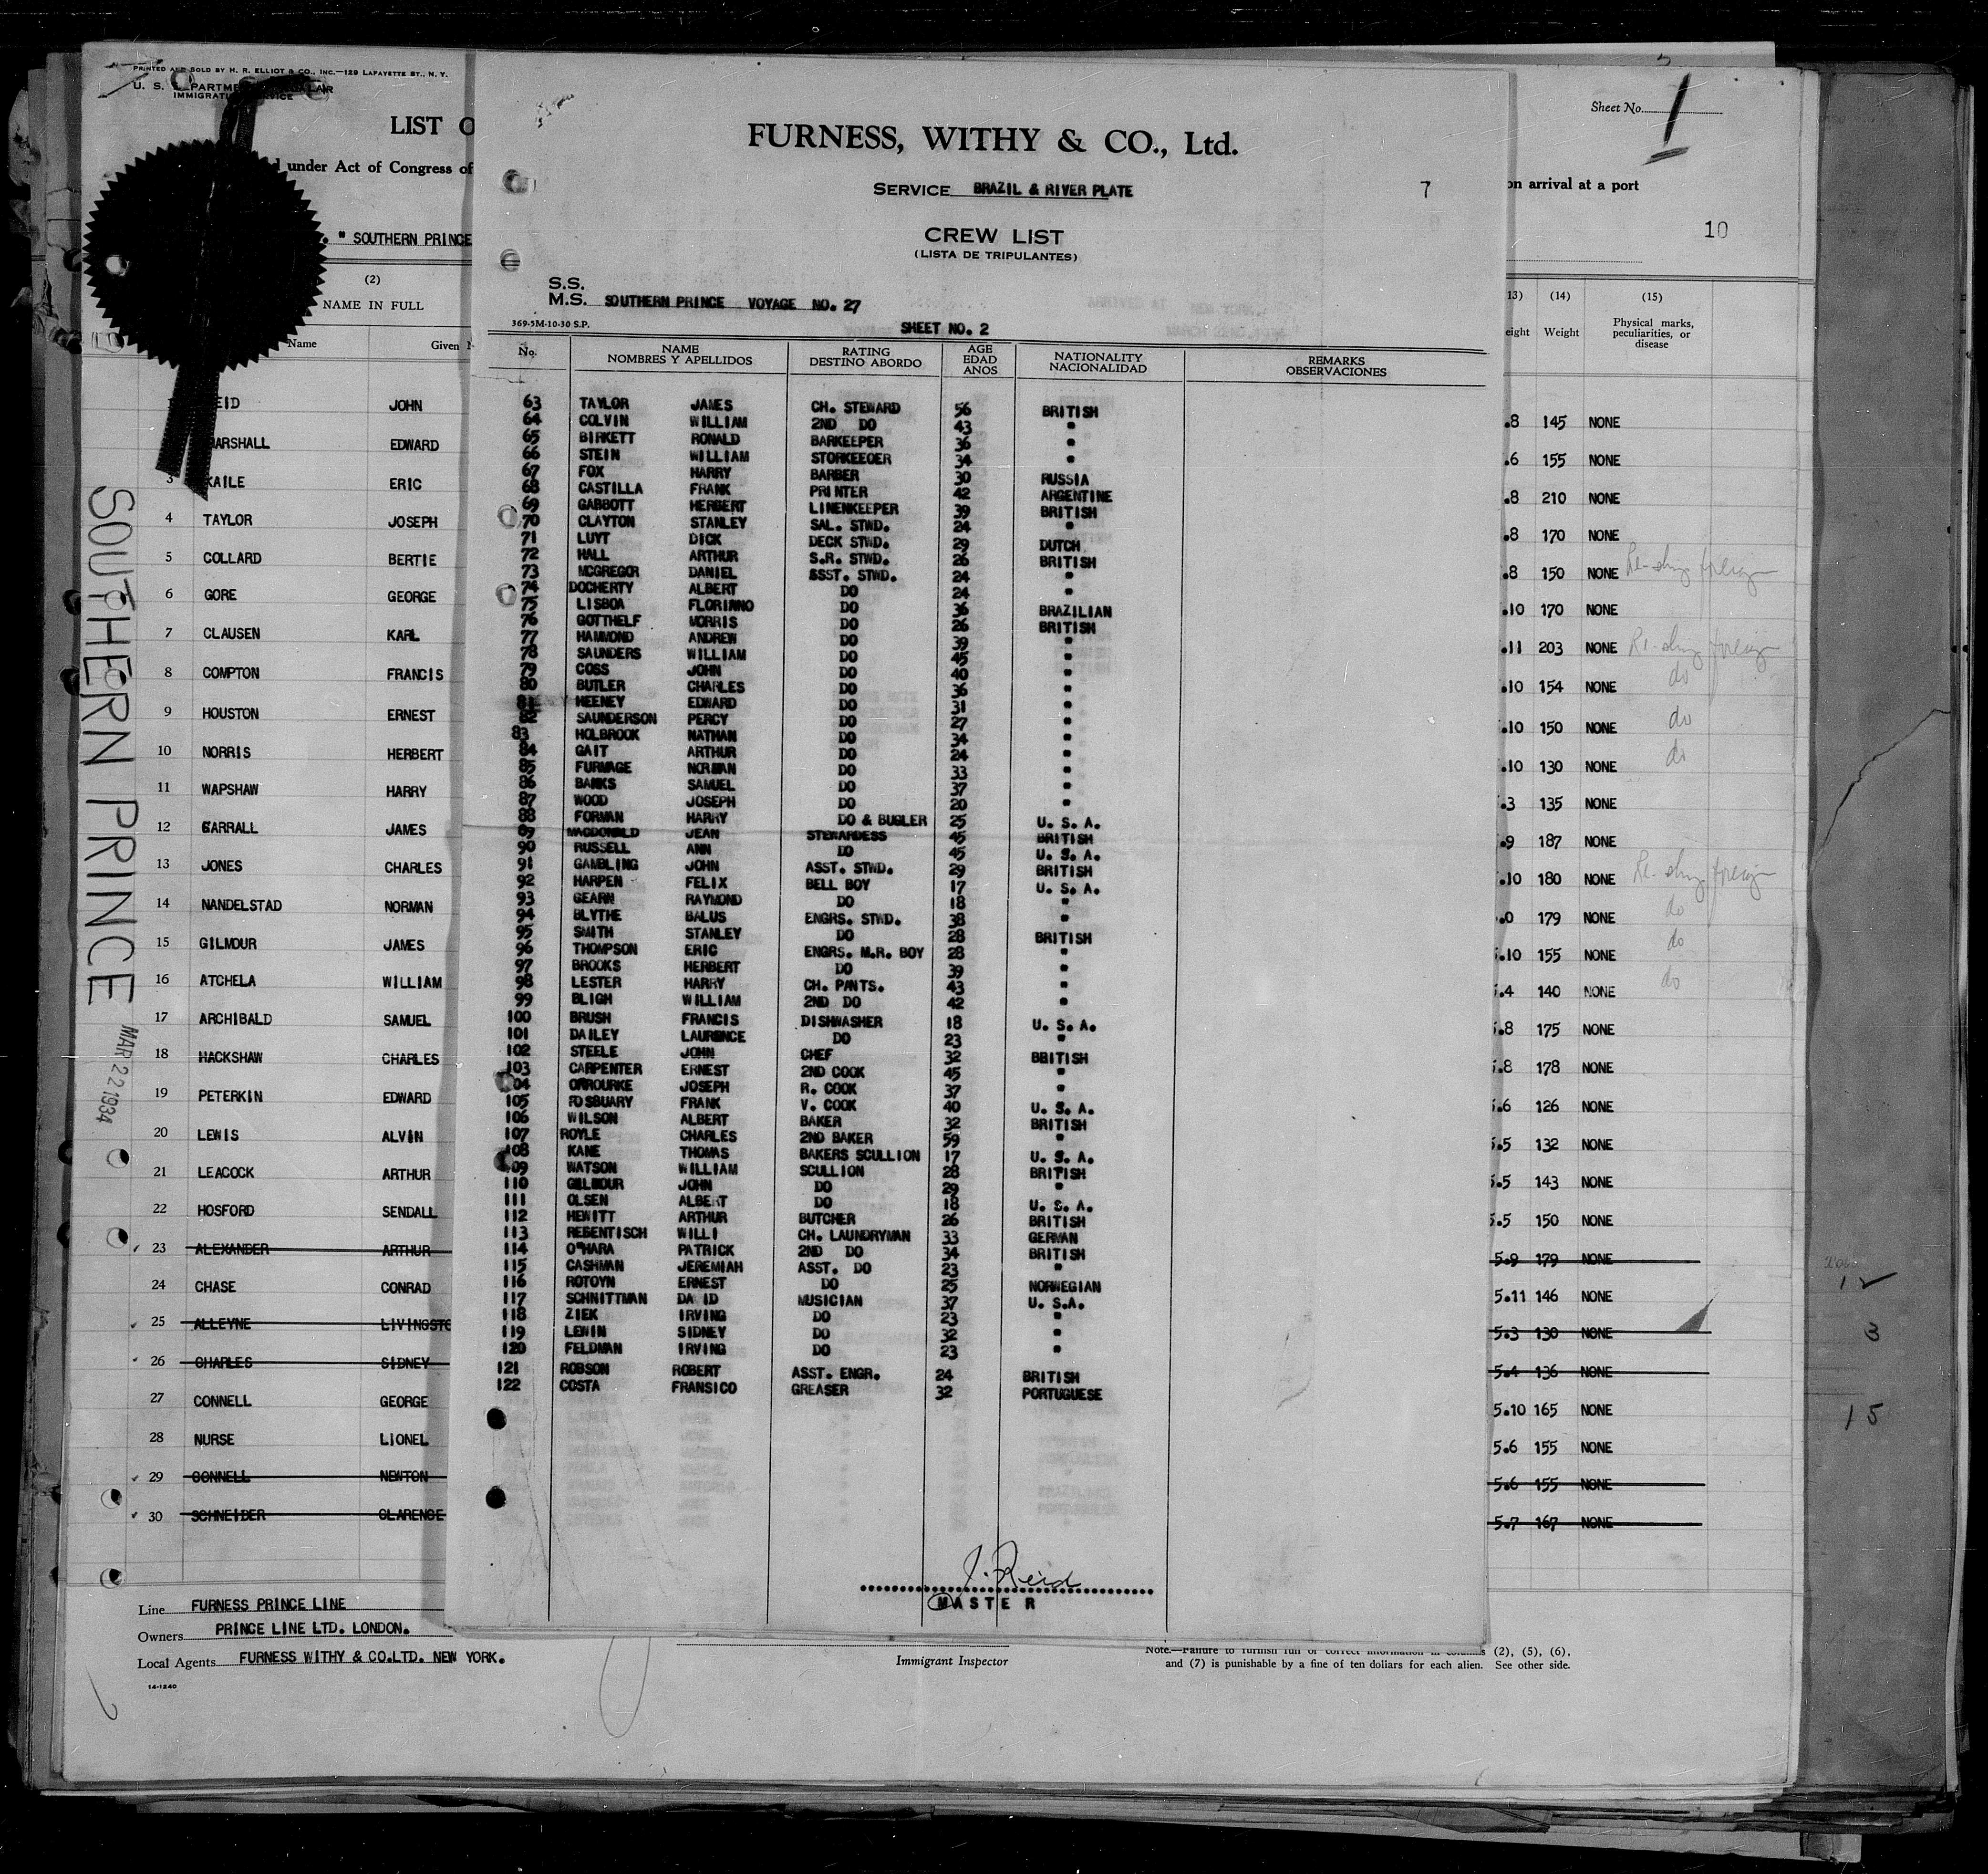 PRINTED AND SOLD BY H. R. ELLIOT & CO., INC.—129 LAFAYETTE ST., N. Y.
U. S.
LIST O
under Act of Congress of
" SOUTHERN PRINCE
(2)
NAME IN FULL
Name Given
EID JOHN
MARSHALL EDWARD
3 KAILE ERIC
4 TAYLOR JOSEPH
5 COLLARD BERTIE
6 GORE GEORGE
7 CLAUSEN KARL
8 COMPTON FRANCIS
9 HOUSTON ERNEST
10 NORRIS HERBERT
11 WAPSHAW HARRY
12 CARRALL JAMES
13 JONES CHARLES
14 NANDELSTAD NORMAN
15 GILMOUR JAMES
16 ATCHELA WILLIAM
17 ARCHIBALD SAMUEL
18 HACKSHAW CHARLES
19 PETERKIN EDWARD
20 LEWIS ALVIN
21 LEACOCK ARTHUR
22 HOSFORD SENDALL
23 ALEXANDER ARTHUR
24 CHASE CONRAD
25 ALLEYNE LIVINGSTO
26 CHARLES SIDNEY
27 CONNELL GEORGE
28 NURSE LIONEL
29 CONNELL NEWTON
30 SCHNEIDER CLARENCE
Line FURNESS PRINCE LINE
Owners PRINCE LINE LTD. LONDON.
Local Agents FURNESS WITHY & CO.LTD. NEW YORK.
14-1240
SOUTHERN PRINCE
MAR 22 1934
FURNESS, WITHY & CO., Ltd.
SERVICE BRAZIL & RIVER PLATE
7
CREW LIST
(LISTA DE TRIPULANTES)
S.S.
M.S. SOUTHERN PRINCE VOYAGE NO. 27
369-5M-10-30 S.P.
SHEET NO. 2
No. NAME NOMBRES Y APELLIDOS RATING DESTINO ABORDO AGE EDAD ANOS NATIONALITY NACIONALIDAD REMARKS OBSERVACIONES
63 TAYLOR JAMES CH. STEWARD 56 BRITISH
64 COLVIN WILLIAM 2ND DO 43 "
65 BIRKETT RONALD BARKEEPER 36 "
66 STEIN WILLIAM STORKEEOER 34 "
67 FOX HARRY BARBER 30 RUSSIA
68 CASTILLA FRANK PRINTER 42 ARGENTINE
69 GABBOTT HERBERT LINENKEEPER 39 BRITISH
70 CLAYTON STANLEY SAL. STWD. 24 "
71 LUYT DICK DECK STWD. 29 DUTCH
72 HALL ARTHUR S.R. STWD. 26 BRITISH
73 MCGREGOR DANIEL SSST. STWD. 24 "
74 DOCHERTY ALBERT DO 24 "
75 LISBOA FLORIANO DO 36 BRAZILIAN
76 GOTTHELF MORRIS DO 26 BRITISH
77 HAMMOND ANDREW DO 39 "
78 SAUNDERS WILLIAM DO 45 "
79 COSS JOHN DO 40 "
80 BUTLER CHARLES DO 36 "
81 HEENEY EDWARD DO 31 "
82 SAUNDERSON PERCY DO 27 "
83 HOLBROOK NATHAN DO 34 "
84 GAIT ARTHUR DO 24 "
85 FURMAGE NORMAN DO 33 "
86 BANKS SAMUEL DO 37 "
87 WOOD JOSEPH DO 20 "
88 FORMAN HARRY DO & BUGLER 25 U. S. A.
89 MACDONALD JEAN STEWARDESS 45 BRITISH
90 RUSSELL ANN DO 45 U. S. A.
91 GAMBLING JOHN ASST. STWD. 29 BRITISH
92 HARPEN FELIX BELL BOY 17 U. S. A.
93 GEARN RAYMOND DO 18 "
94 BLYTHE BALUS ENGRS. STWD. 38 "
95 SMITH STANLEY DO 28 BRITISH
96 THOMPSON ERIC ENGRS. M.R. BOY 28 "
97 BROOKS HERBERT DO 39 "
98 LESTER HARRY CH. PNTS. 43 "
99 BLIGH WILLIAM 2ND DO 42 "
100 BRUSH FRANCIS DISHWASHER 18 U. S. A.
101 DAILEY LAURENCE DO 23 "
102 STEELE JOHN CHEF 32 BRITISH
103 CARPENTER ERNEST 2ND COOK 45 "
104 ORROURKE JOSEPH R. COOK 37 "
105 FOSBUARY FRANK V. COOK 40 U. S. A.
106 WILSON ALBERT BAKER 32 BRITISH
107 ROYLE CHARLES 2ND BAKER 59 "
108 KANE THOMAS BAKERS SCULLION 17 U. S. A.
109 WATSON WILLIAM SCULLION 28 BRITISH
110 GILMOUR JOHN DO 29 "
111 OLSEN ALBERT DO 18 U. S. A.
112 HEWITT ARTHUR BUTCHER 26 BRITISH
113 REBENTISCH WILLI CH. LAUNDRYMAN 33 GERMAN
114 O'HARA PATRICK 2ND DO 34 BRITISH
115 CASHMAN JEREMIAH ASST. DO 23 "
116 ROTOYN ERNEST DO 25 NORWEGIAN
117 SCHNITTMAN DA ID MUSICIAN 37 U. S.A.
118 ZIEK IRVING DO 23 "
119 LEWIN SIDNEY DO 32 "
120 FELDMAN IRVING DO 23 "
121 ROBSON ROBERT ASST. ENGR. 24 BRITISH
122 COSTA FRANSICO GREASER 32 PORTUGUESE
J. Reid
MASTER
Immigrant Inspector
Note.—Failure to furnish full or correct information in columns (2), (5), (6),
and (7) is punishable by a fine of ten dollars for each alien. See other side.
Sheet No. 1
on arrival at a port
10
13) (14) (15)
eight Weight Physical marks, peculiarities, or disease
.8 145 NONE
.6 155 NONE
.8 210 NONE
.8 170 NONE
.8 150 NONE
.10 170 NONE
.11 203 NONE
.10 154 NONE do
.10 150 NONE do
.10 130 NONE do
.3 135 NONE
.9 187 NONE
.10 180 NONE
.0 179 NONE do
.10 155 NONE do
.4 140 NONE do
.8 175 NONE
.8 178 NONE
.6 126 NONE
5.5 132 NONE
.5 143 NONE
5.5 150 NONE
5.9 179 NONE
5.11 146 NONE
5.3 130 NONE
5.4 136 NONE
5.10 165 NONE
5.6 155 NONE
5.6 155 NONE
5.7 167 NONE
12
3
15